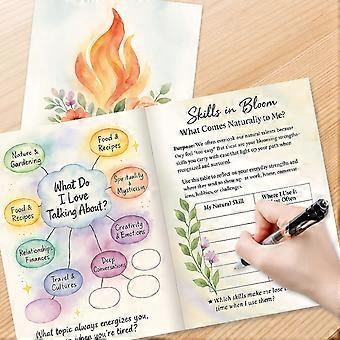 Nature &
Gardening
Food &
Recipes
Spirituality
& Mysticism
What Do
I Love
Talking About?
Food &
Recipes
Creativity
& Emotions
Relationships
Finances
Deep
Conversations
Travel &
Cultures
What topic always energizes you,
when you're tired?
Skills in Bloom
What Comes Naturally to Me?
Purpose: We often overlook our natural talents because
they feel "too easy." But these are your blooming strengths-
skills you carry with ease that light up your path when
recognized and nurtured.
Use this table to reflect on your everyday strengths and
where they tend to show up - at work, home,
hobbies, or challenges.
My Natural Skill
Where I Use it
Often
★ Which skills make me lose
time when I use them?